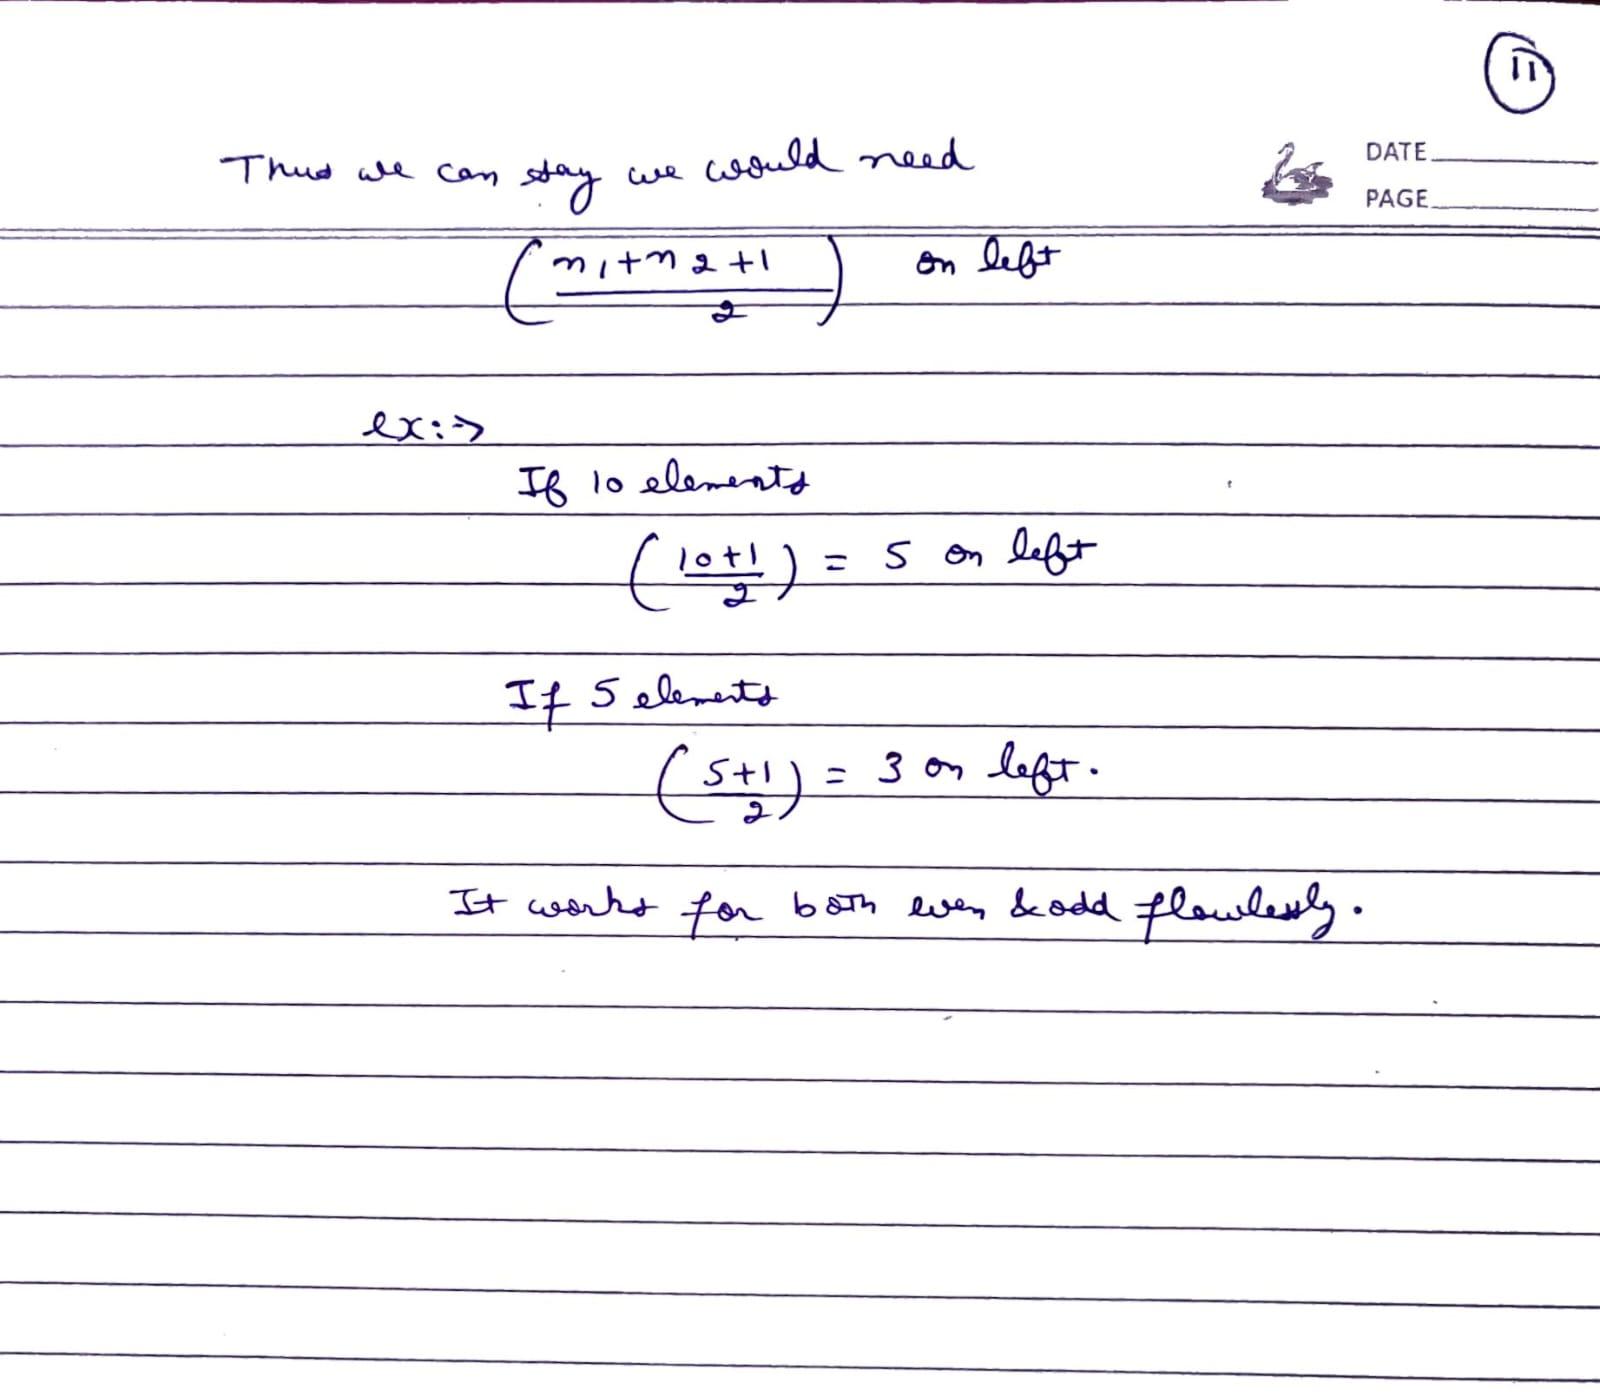 11
Thus we can stay we would need
DATE
PAGE
(n1+n2+1 / 2) on left
ex:->
If 10 elements
(10+1 / 2) = 5 on left
If 5 elements
(5+1 / 2) = 3 on left.
It works for both even & odd flawlessly.